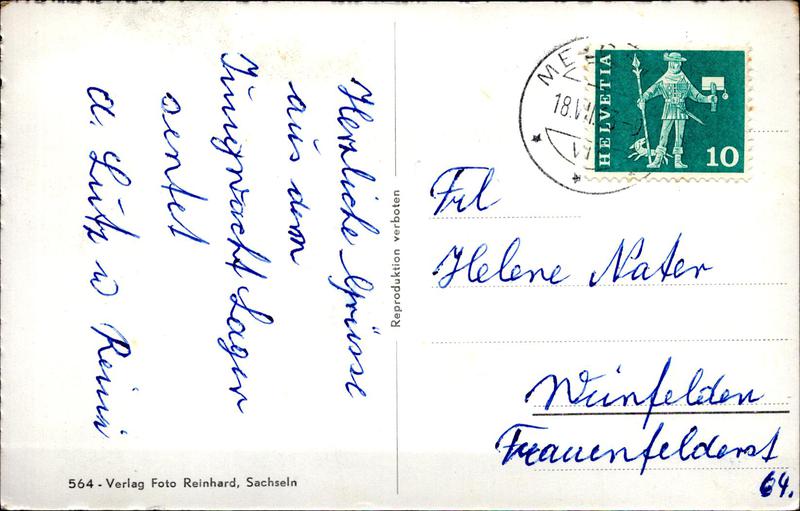 Herzliche Grüsse
aus dem
Jungwacht Lager
sentet
d. Lutz u Reini
564 - Verlag Foto Reinhard, Sachseln
Reproduktion verboten
HELVETIA
10
18.VII.
Frl
Helene Nater
Weinfelden
Frauenfelderst
64.